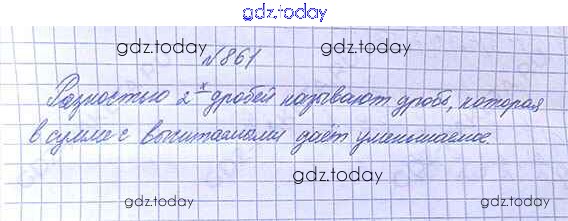 gdz.today
gdz.today gdz.today
№861
Разностью 2х дробей называют дробь, которая
в сумме с вычитаемыми даёт уменьшаемое.
gdz.today
gdz.today gdz.today